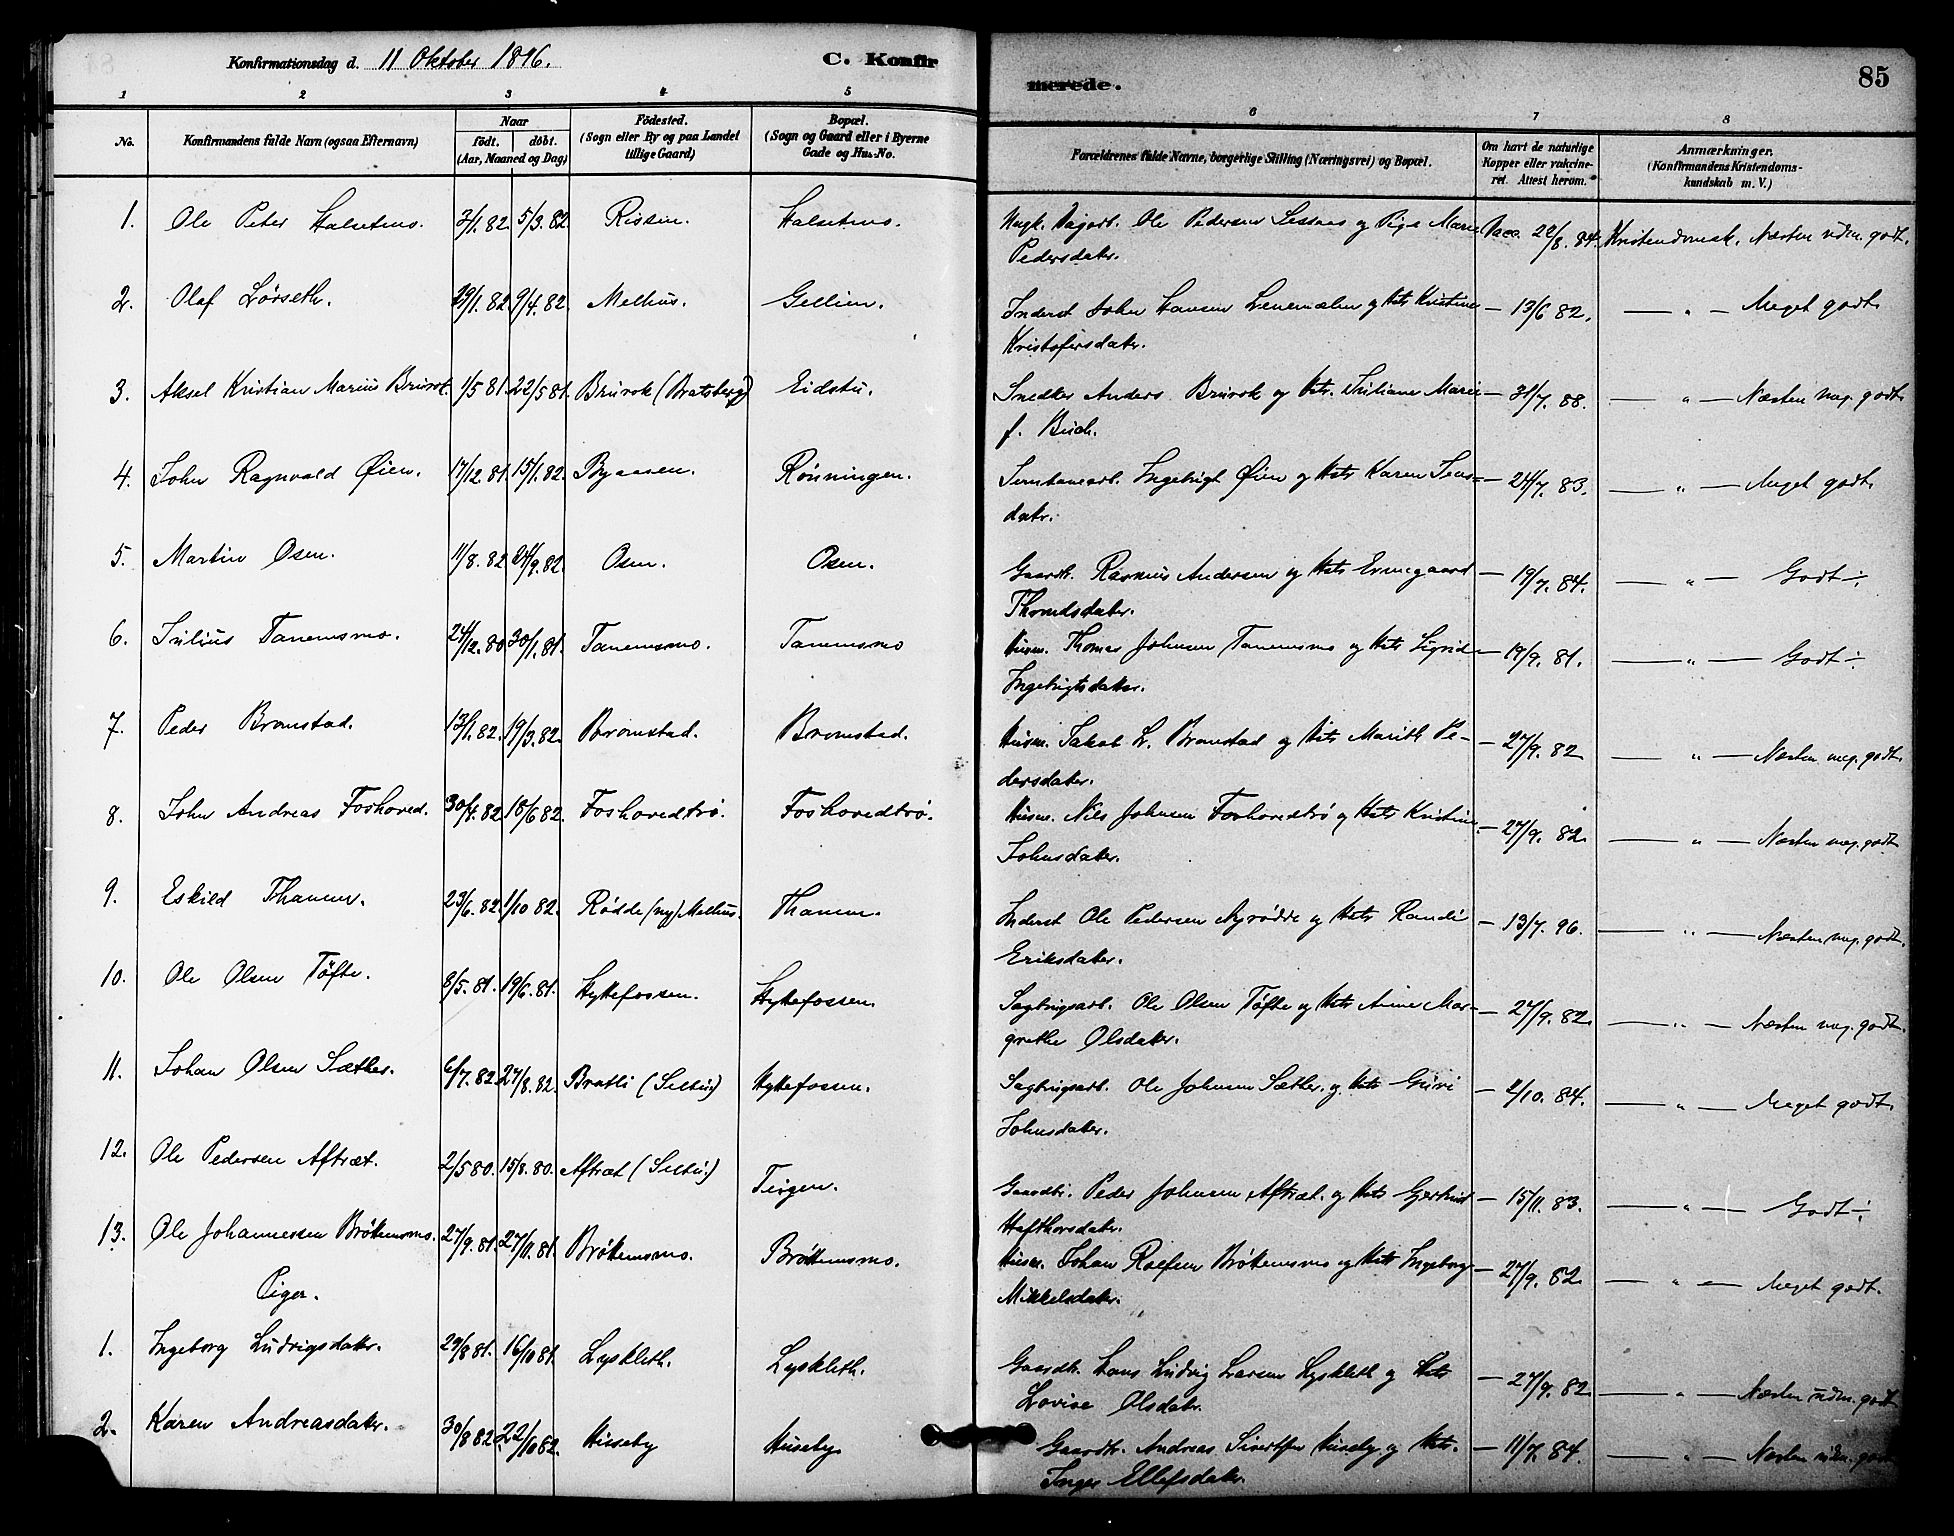 Konfirmationsdag d. 11 Oktober 1896.
C. Konfirmerede.
85
1 2 3 4 5 6 7 8
No.
Konfirmandens fulde Navn (ogsaa Efternavn)
Naar
født. døbt.
(Aar, Maaned og Dag)
Fødested.
(Sogn eller By og paa Landet
tillige Gaard)
Bopæl.
(Sogn og Gaard eller i Byerne
Gade og Hus-No.
Forældrenes fulde Navne, borgerlige Stilling (Næringsvei) og Bopæl.
Om havt de naturlige
Kopper eller vakcine-
ret. Attest herom.
Anmærkninger.
(Konfirmandens Kristendoms-
kundskab m. V.)
1. Ole Peter Halsetmo. 3/1.82. 5/3.82. Rissen. Halsetmo. Ole Pedersen og Pige Marie Vacc. 22/8.84. Kristendomsk. Næsten uden. godt.
Pedersdater.
2. Olaf Lørseth. 29/1.82. 9/4.82. Melhus. Gellien. Inderst John Hansen og Hst. Kristine — 13/6 82. — " — Meget godt.
Kristofersdater.
3. Aksel Kristian Marius Brurok. 1/5 81. 22/5 81. Brurok (Bratsberg) Eidstu. Snedker Anders Brurok og Hst. Juliane Marie — 31/7. 88. — " — Næsten meg. godt.
f. Buch.
4. John Ragnvald Øien. 17/12.81. 15/1.82. Byaasen. Rønningen. Jernbanearb. Ingebrigt Øien og Hst. Karen Jens- — 24/7. 83. — " — Meget godt.
datr.
5. Martin Osen. 11/8.82. 24/9.82. Osen. Osen. Gaardbr. Rasmus Andersen og Hst. Ermegaard — 19/7. 84. — " — Godt ÷.
Thomdsdater.
6. Julius Tanemsmo. 24/12.80. 30/1.81. Tanemsmo. Tanemsmo Husm. Thomas Johnsen Tanemsmo og Hst. Sigrid — 19/9. 81. — " — Godt ÷.
Ingebrigtsdater.
7. Peder Bromstad. 13/1.82. 19/3.82. Bromstad. Bromstad. Husm. Jakob L. Bromstad og Hst. Marith Pe- — 27/9. 82 — " — Næsten meg. godt.
dersdater.
8. John Andreas Foshoved. 30/4.82. 18/6 82. Foshovedtrø. Foshovedtrø. Husm. Nils Johnsen Foshovedtrø og Hst. Kristine — 27/9. 82. — " — Næsten meg. godt
Johnsdater.
9. Eskild Thanem. 23/6.82. 1/10 82. Rødde (ny) Melhus. Thanem. Inderst Ole Pedersen Nyrødde og Hst. Randi — 13/7. 96. — " — Næsten meg. godt.
Eriksdater.
10. Ole Olsen Tøfte. 8/5.81. 19/6.81. Hyttefossen. Hyttefossen. Sagbrugsarb. Ole Olsen Tøfte og Hst. Anne Mar- — 27/9. 82. — " — Næsten meg. godt.
grethe Olsdater.
11. Johan Olsen Sæther. 6/7.82. 27/8.82. Bratli (Selbu) Hyttefossen. Sagbrugsarb. Ole Johnsen Sæther. og Hst. Guri — 2/10. 84. — " — Meget godt.
Johnsdater.
12. Ole Pedersen Aftræt. 2/5 80. 15/8.80. Aftræt (Selbu) Teigen. Gaardbr. Peder Johnsen Aftræt. og Hst. Gjertrud — 15/11. 83. — " — Godt ÷.
Hafthorsdater.
13. Ole Johannessen Brøttemsmo. 27/9.81. 27/11.81. Brøttemsmo. Brøttemsmo. Husm. Johan Rolfsen Brøttemsmo og Hst. Ingeborg — 27/9. 82. — " — Meget godt.
Mikkelsdater.
Piger.
1. Ingeborg Ludvigsdater. 29/8 81. 16/10 81. Lyskleth. Lyskleth. Gaardbr. Hans Ludvig Larsen Lyskleth og Hst. — 27/9. 82. — " — Næsten uden. godt
Lovise Olsdatr.
2. Karen Andreasdater. 30/8 82. 22/10 82. Huseby Huseby Gaardbr. Andreas Sivertsen Huseby og Hst. — 11/7. 84. — " — Næsten uden. godt
Inger Ellefsdater.